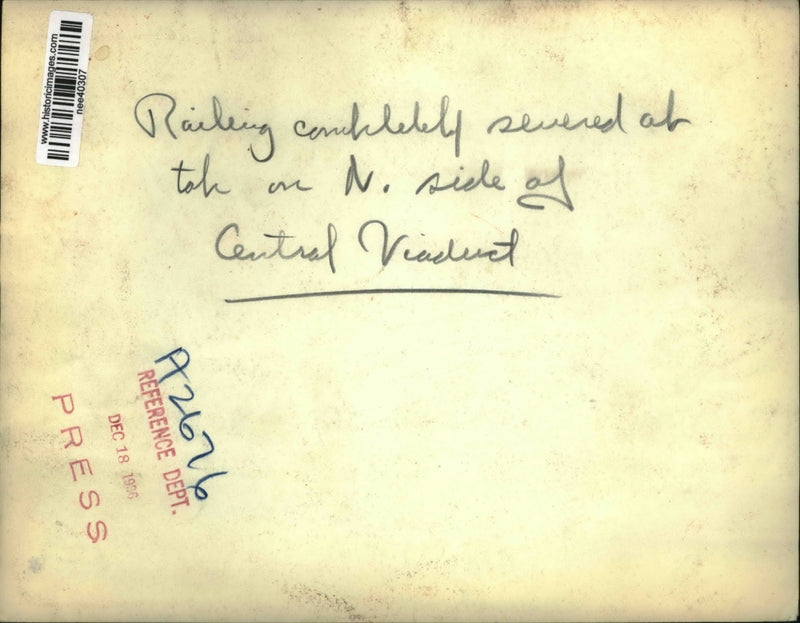 www.historicimages.com
nee40307
Railing completely severed at
top on N. side of
Central Viaduct
A2676
REFERENCE DEPT.
DEC 18 1936
PRESS